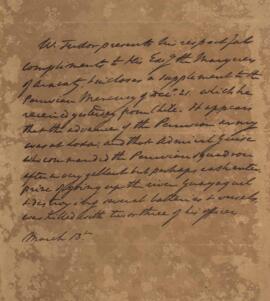 Mr Tudor presents his respectful
compliments to His Exc.y the Marquess
of Aracaty, & incloses a supplement to the
Peruvian Mercury of Decr 21. which he
received yesterday from Chile. It appears
that the advance of the Peruvian army
was at Loxa; and that Admiral Guise
who commanded the Peruvian squadron
after a very gallant but perhaps rash enter
prize of going up the river Guayaquil
& destroying several batteries & vessels
was killed with two or three of his officers
March 13th